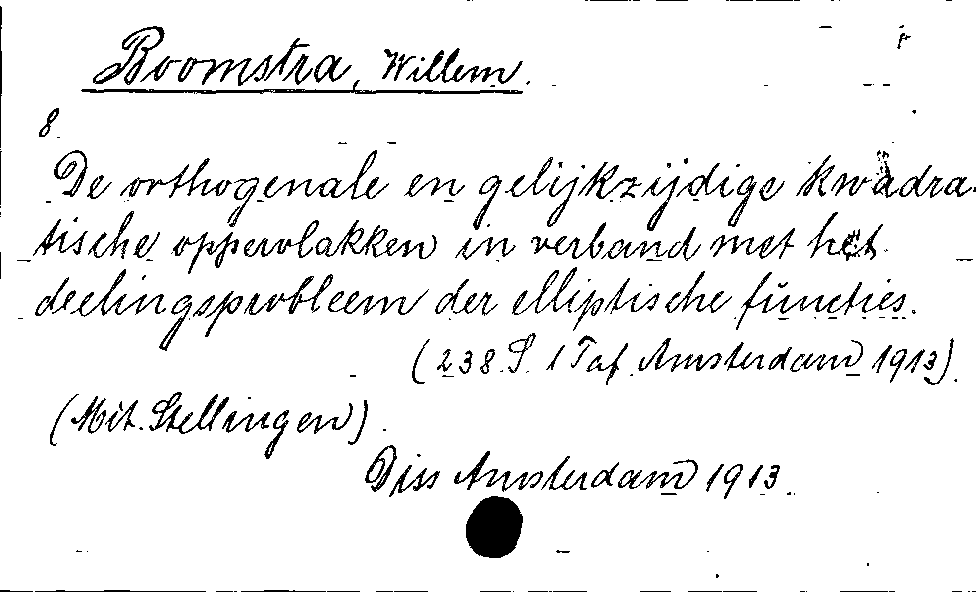 Boomstra, Willem.
8
De orthogenale en gelijkzijdige kwadra-
tische oppervlakken in verband met het
deelingsprobleem der elliptische functies.
(238 S. 1 Taf. Amsterdam 1913).
(Mit Stellingen).
Diss Amsterdam 1913.